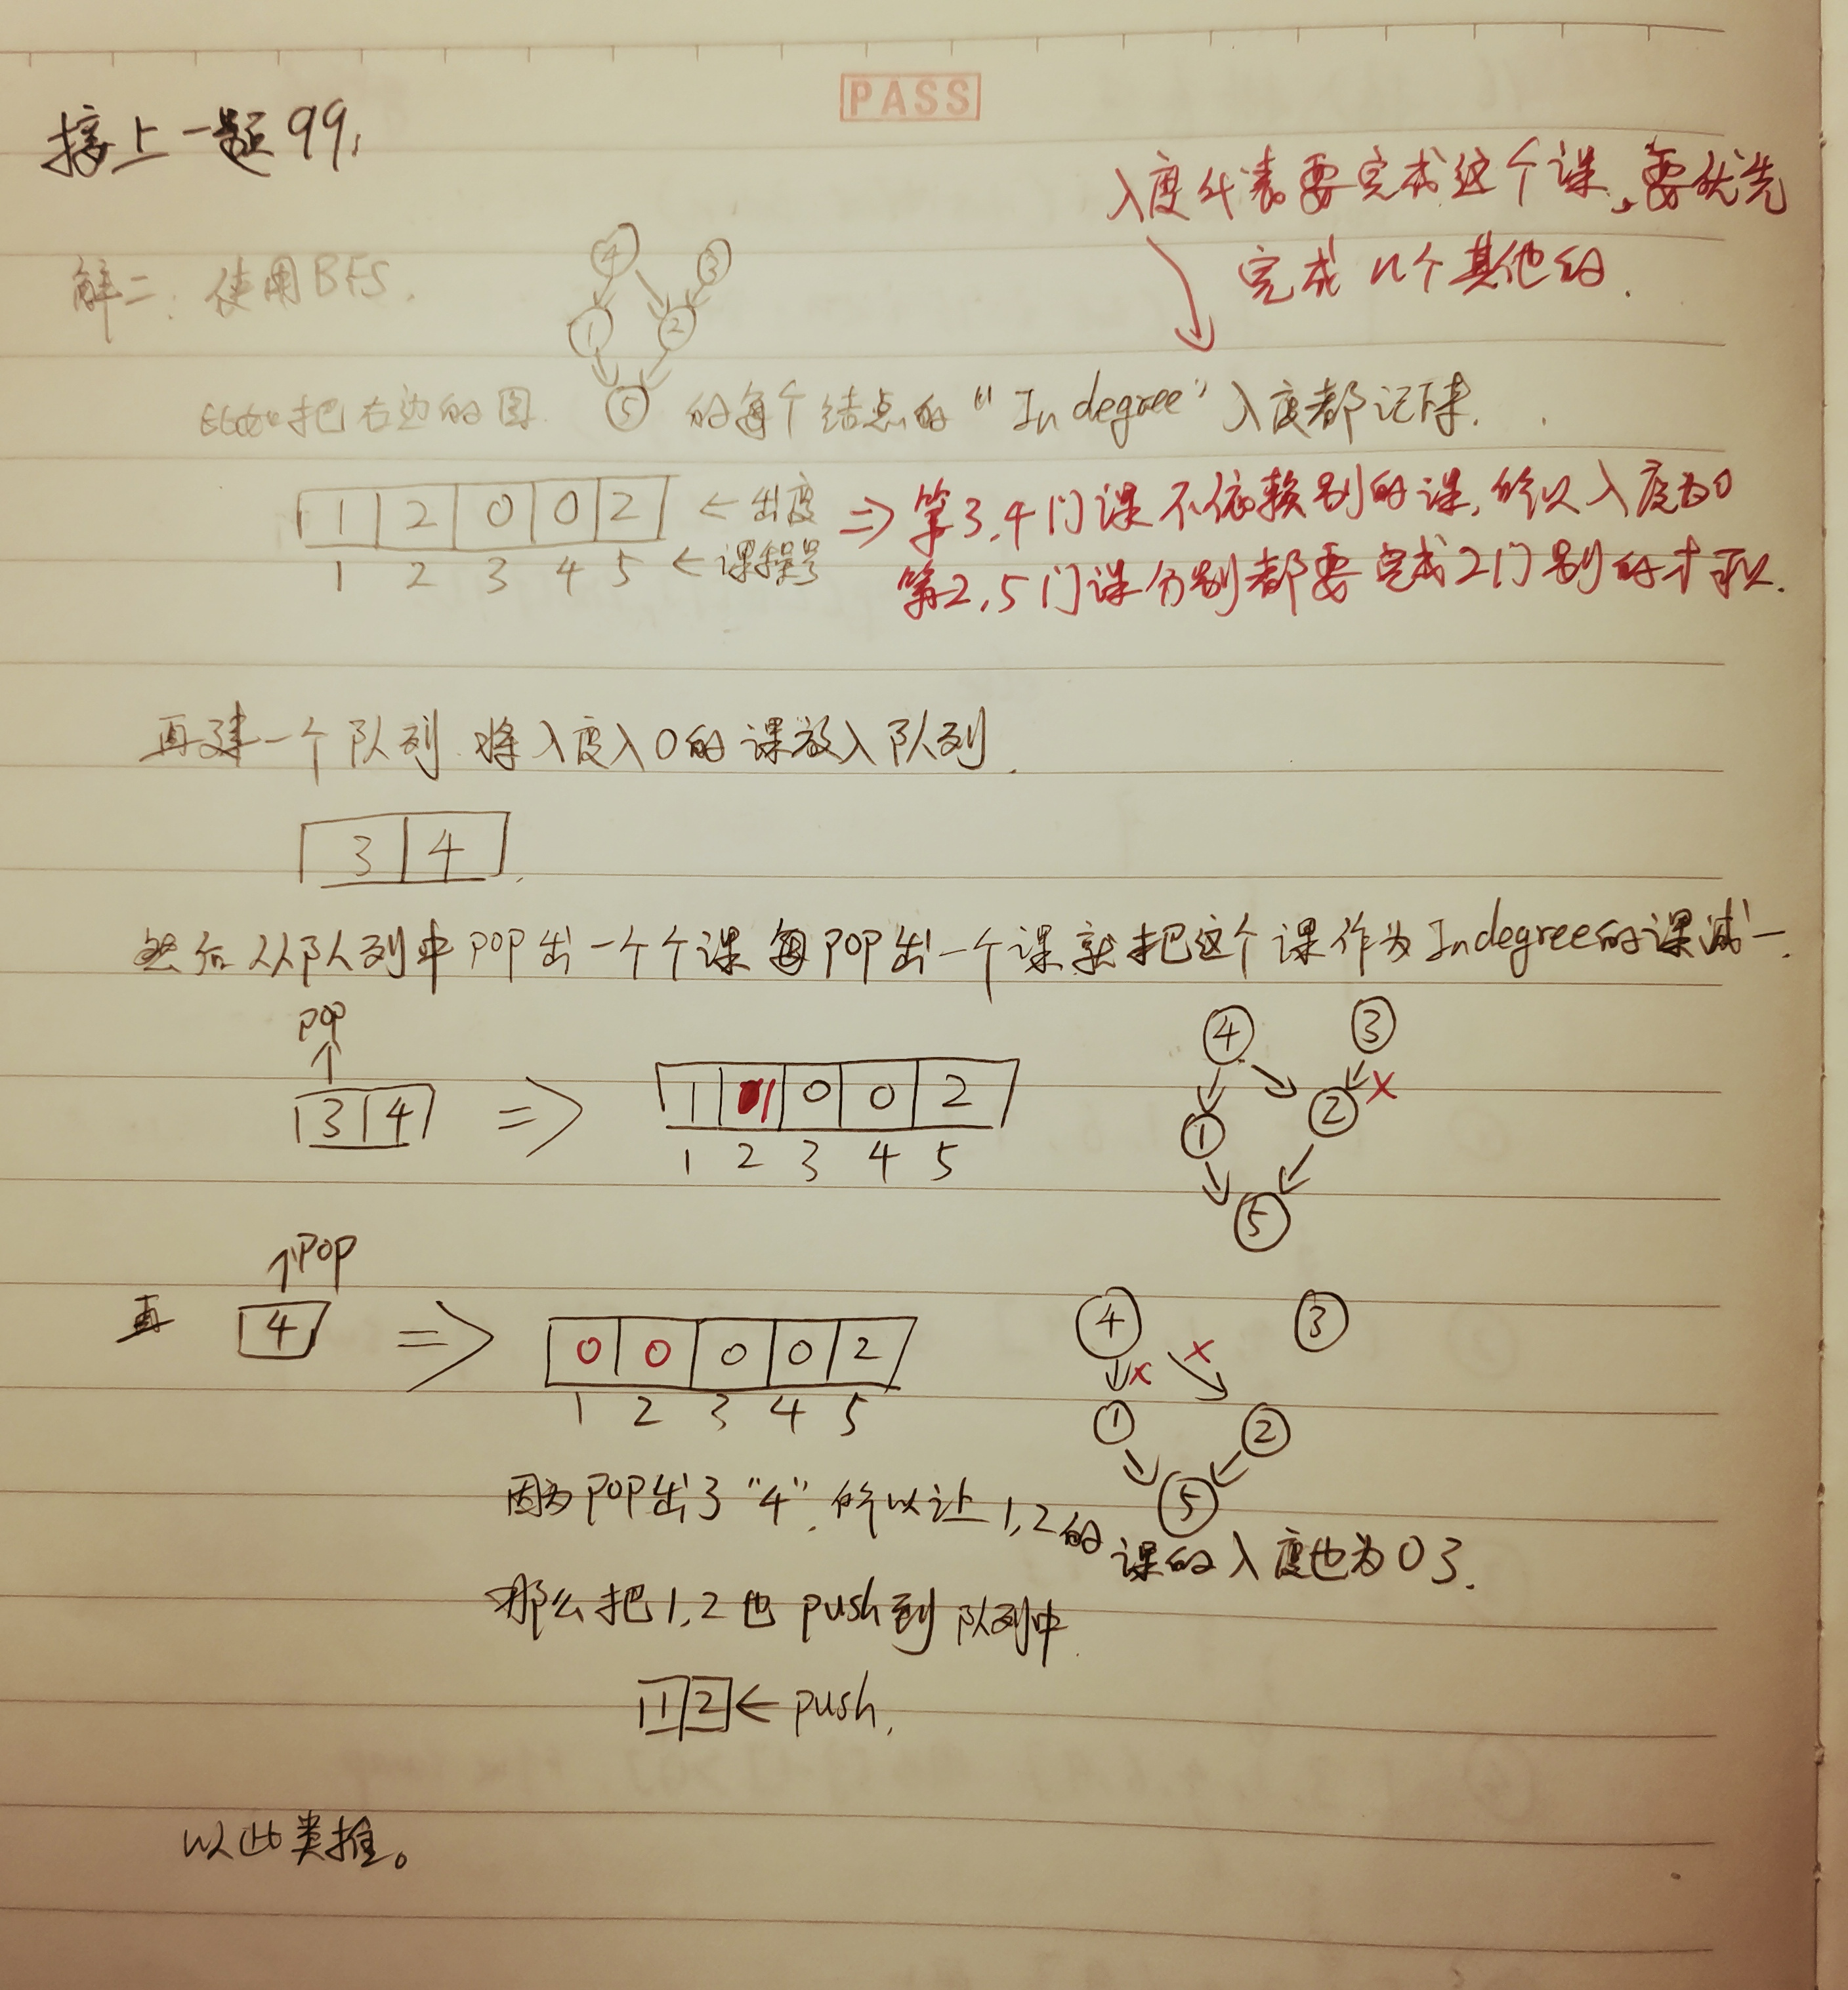 PASS
接上一题99,
入度代表要完成这个课,要优先
完成n个其他的.
解二: 使用BFS.
4 3
1 2
比如把右边的图 5 的每个结点的"Indegree"入度都记下来.
1 2 0 0 2 ←出度 => 第3,4门课不依赖别的课,所以入度为0
1 2 3 4 5 ←课程号 第2,5门课分别都要完成2门别的才可以.
再建一个队列.将入度入0的课放入队列.
3 4
然后从队列中POP出一个个课 每POP出一个课就把这个课作为Indegree的课减一.
POP
3 4 => 1 1 0 0 2
1 2 3 4 5
4 3
1 2 x
5
↑POP
再 4 => 0 0 0 0 2
1 2 3 4 5
4 3
x x
1 2
5
因为POP出了"4",所以让1,2的课的入度也为0了.
那么把1,2也push到队列中.
1 2 ← push.
以此类推。